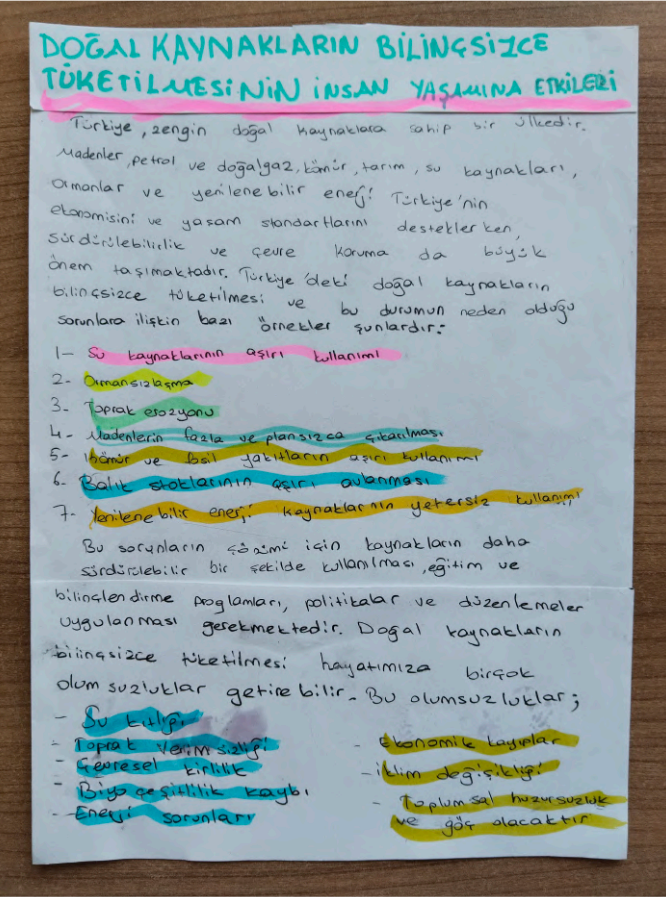 DOĞAL KAYNAKLARIN BİLİNÇSİZCE
TÜKETİLMESİNİN İNSAN YAŞAMINA ETKİLERİ
Türkiye, zengin doğal kaynaklara sahip bir ülkedir.
Madenler, petrol ve doğalgaz, kömür, tarım, su kaynakları,
Ormanlar ve yenilenebilir enerji Türkiye'nin
ekonomisini ve yaşam standartlarını desteklerken,
sürdürülebilirlik ve çevre koruma da büyük
önem taşımaktadır. Türkiye'deki doğal kaynakların
bilinçsizce tüketilmesi ve bu durumun neden olduğu
sorunlara ilişkin bazı örnekler şunlardır:
1- Su kaynaklarının aşırı kullanımı
2- Ormansızlaşma
3- Toprak erozyonu
4- Madenlerin fazla ve plansızca çıkarılması
5- Kömür ve fosil yakıtların aşırı kullanımı
6- Balık stoklarının aşırı avlanması
7- Yenilenebilir enerji kaynaklarının yetersiz kullanımı
Bu sorunların çözümü için kaynakların daha
sürdürülebilir bir şekilde kullanılması, eğitim ve
bilinçlendirme proglamları, politikalar ve düzenlemeler
uygulanması gerekmektedir. Doğal kaynakların
bilinçsizce tüketilmesi hayatımıza birçok
olumsuzluklar getirebilir. Bu olumsuzluklar;
- Su kıtlığı
- Toprak verimsizliği
- Çevresel kirlilik
- Biyoçeşitlilik kaybı
- Enerji sorunları
- Ekonomik kayıplar
- İklim değişikliği
- Toplumsal huzursuzluk
ve göç olacaktır